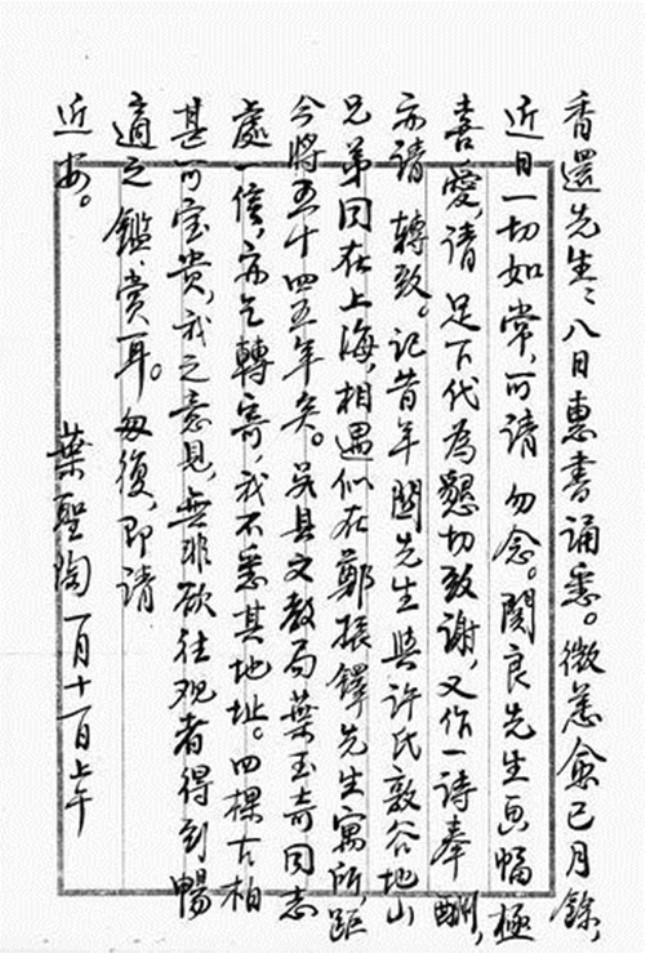 香還先生:八日惠書誦悉。微恙愈已月餘,
近日一切如常,可請 勿念。関良先生画幅極
喜愛,請 足下代為懇切致謝,又作一詩奉酬,
亦請 轉致。記昔年関先生與許氏敦谷地山
兄弟同在上海,相遇似在鄭振鐸先生寓所,距
今將五十四五年矣。吴县文教局葉玉奇同志
處一信,亦乞轉寄,我不悉其地址。四棵古柏
甚可宝貴,我之意見,無非欲往观者得到暢
適之鑑賞耳。匆復,即請
近安。
葉聖陶 一月十一日上午